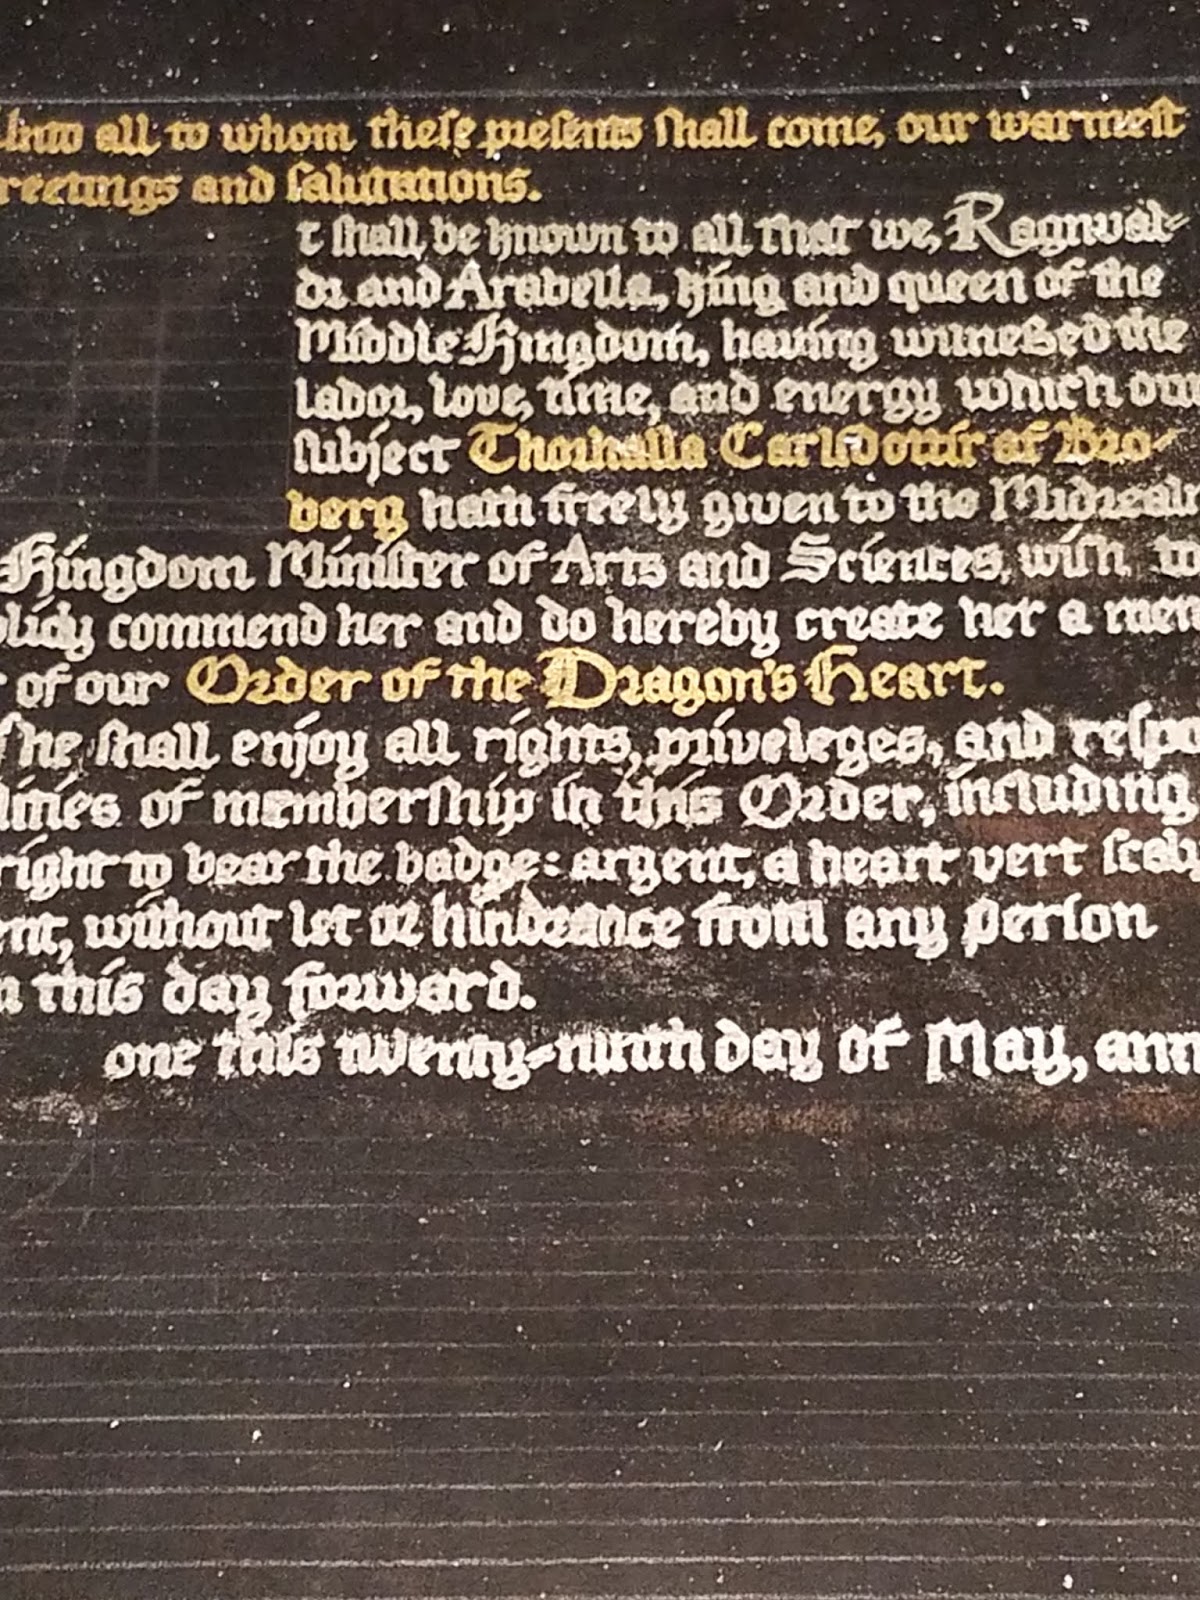 into all to whom these presents shall come, our warmest
reetings and salutations.
t shall be known to all that we, Ragnval-
dr and Arabella, king and queen of the
Middle Kingdom, having witneßed the
labor, love, time, and energy which our
subject Thorhalla Carlsdottir af Bro-
berg hath freely given to the Midrealm
Kingdom Minister of Arts and Sciences, wish to
licly commend her and do hereby create her a mem
of our Order of the Dragon's Heart.
She shall enjoy all rights, priveleges, and respo
lities of membership in this Order, including
right to bear the badge: argent, a heart vert scaly
ent, without let or hindrance from any person
m this day forward.
one this twenty-ninth day of May, ann